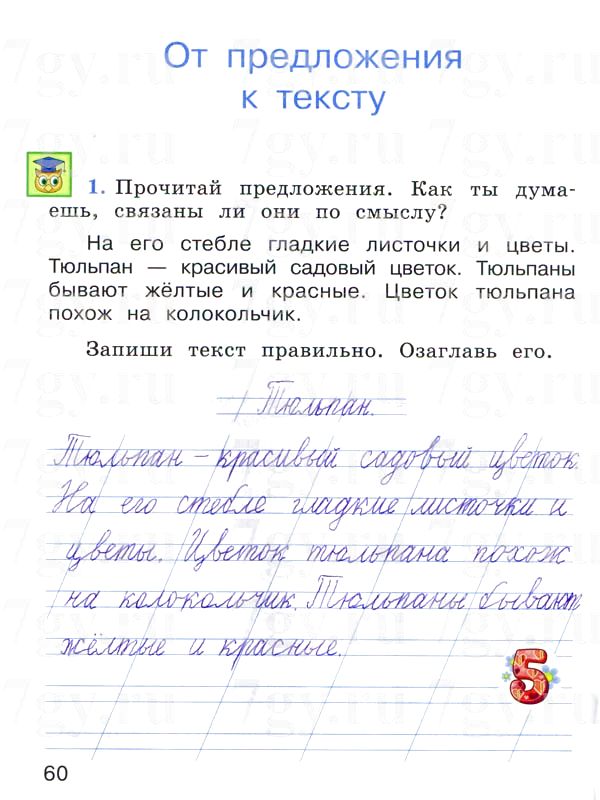 От предложения
к тексту
1. Прочитай предложения. Как ты дума-
ешь, связаны ли они по смыслу?
На его стебле гладкие листочки и цветы.
Тюльпан — красивый садовый цветок. Тюльпаны
бывают жёлтые и красные. Цветок тюльпана
похож на колокольчик.
Запиши текст правильно. Озаглавь его.
Тюльпан.
Тюльпан – красивый садовый цветок.
На его стебле гладкие листочки и
цветы. Цветок тюльпана похож
на колокольчик. Тюльпаны бывают
жёлтые и красные.
5
60
7gy.ru